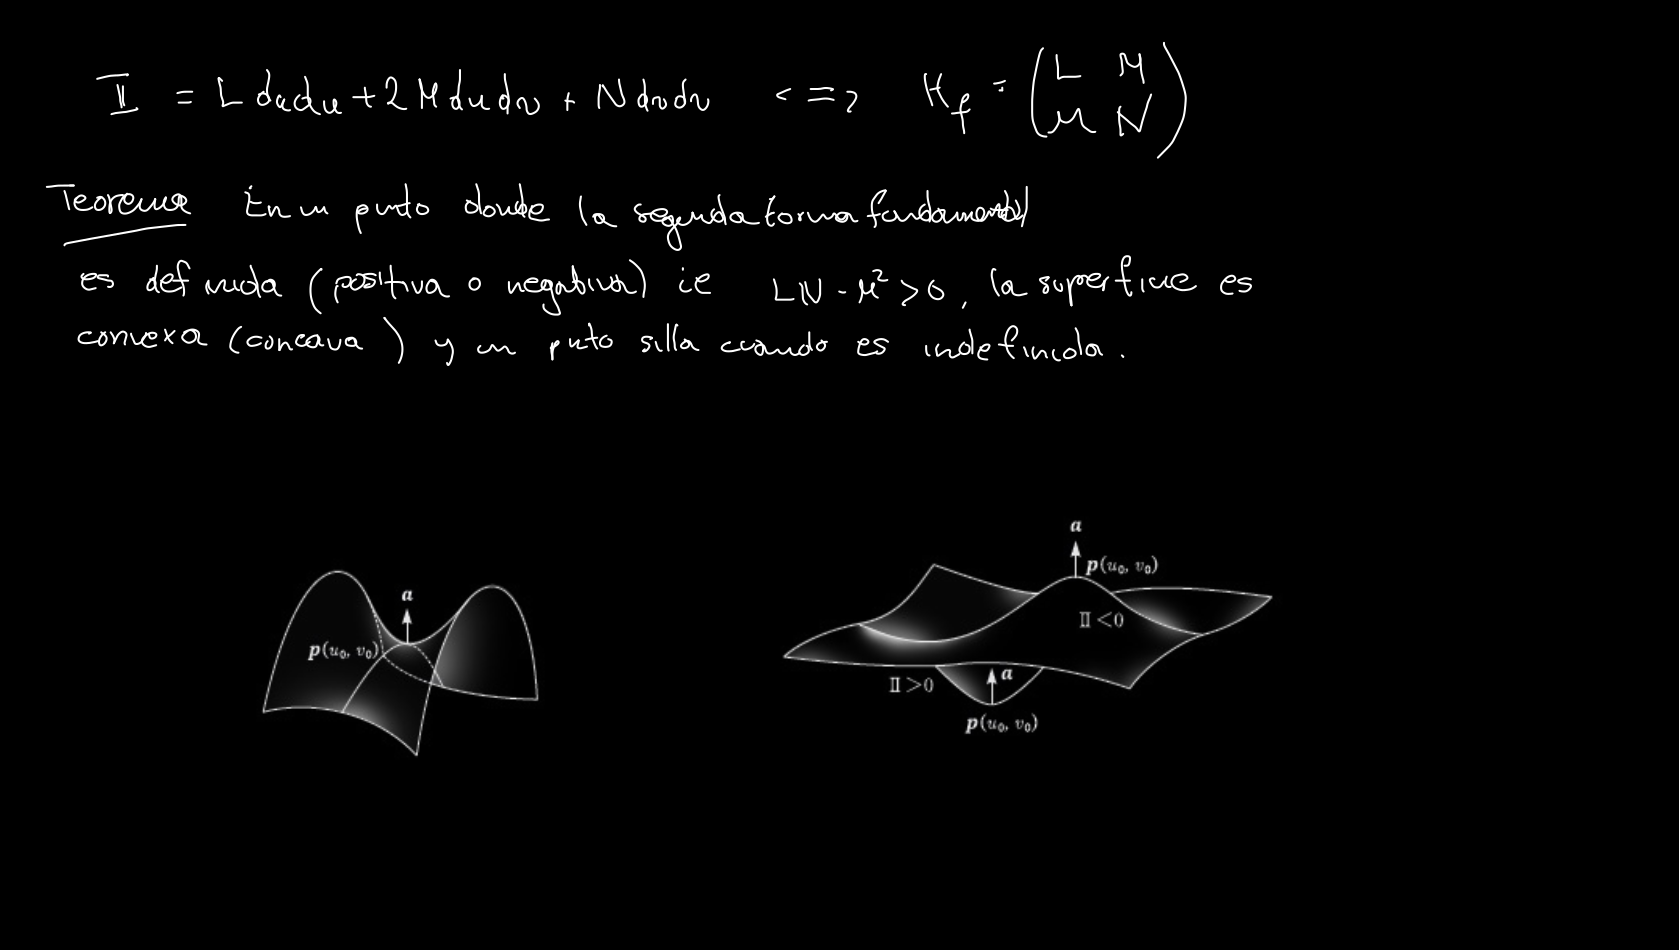 II = L dudu + 2 M du dv + N dv dv <=> H_f = (L M
M N)
Teorema En un punto donde la segunda forma fundamental
es definida (positiva o negativa) ie LN - M² > 0, la superficie es
convexa (concava) y un punto silla cuando es indefinida.
a
p(u₀, v₀)
a
p(u₀, v₀)
II < 0
II > 0
a
p(u₀, v₀)